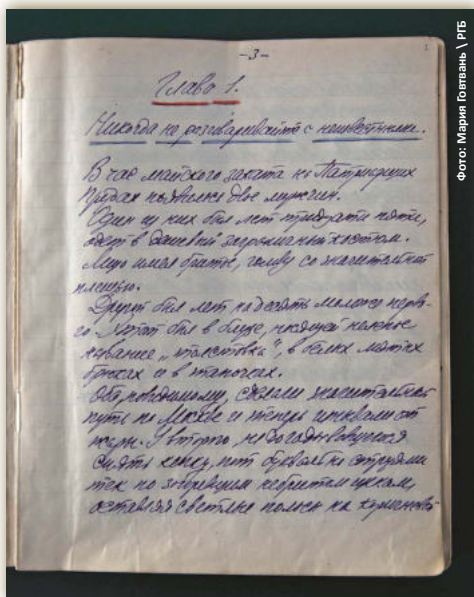 -3-
Глава 1.
Никогда не разговаривайте с неизвестными.
В час майского заката на Патриарших
Прудах появилось двое мужчин.
Один из них был лет тридцати пяти,
одет в дешевый заграничный костюм.
Лицо имел бритое, голову со значительной
плешью.
Другой был лет на десять моложе перво-
го. Этот был в блузе, носящей нелепое
название „толстовка", в белых мятых
брюках и в тапочках.
Оба, повидимому, сделали значительный
путь по Москве и теперь изнывали от
жары. У второго, не догадавшегося
снять кепку, пот буквально струями
тек по загоревшим небритым щекам,
оставляя светлые полосы на коричневой
Фото: Мария Говтвань \ РГБ